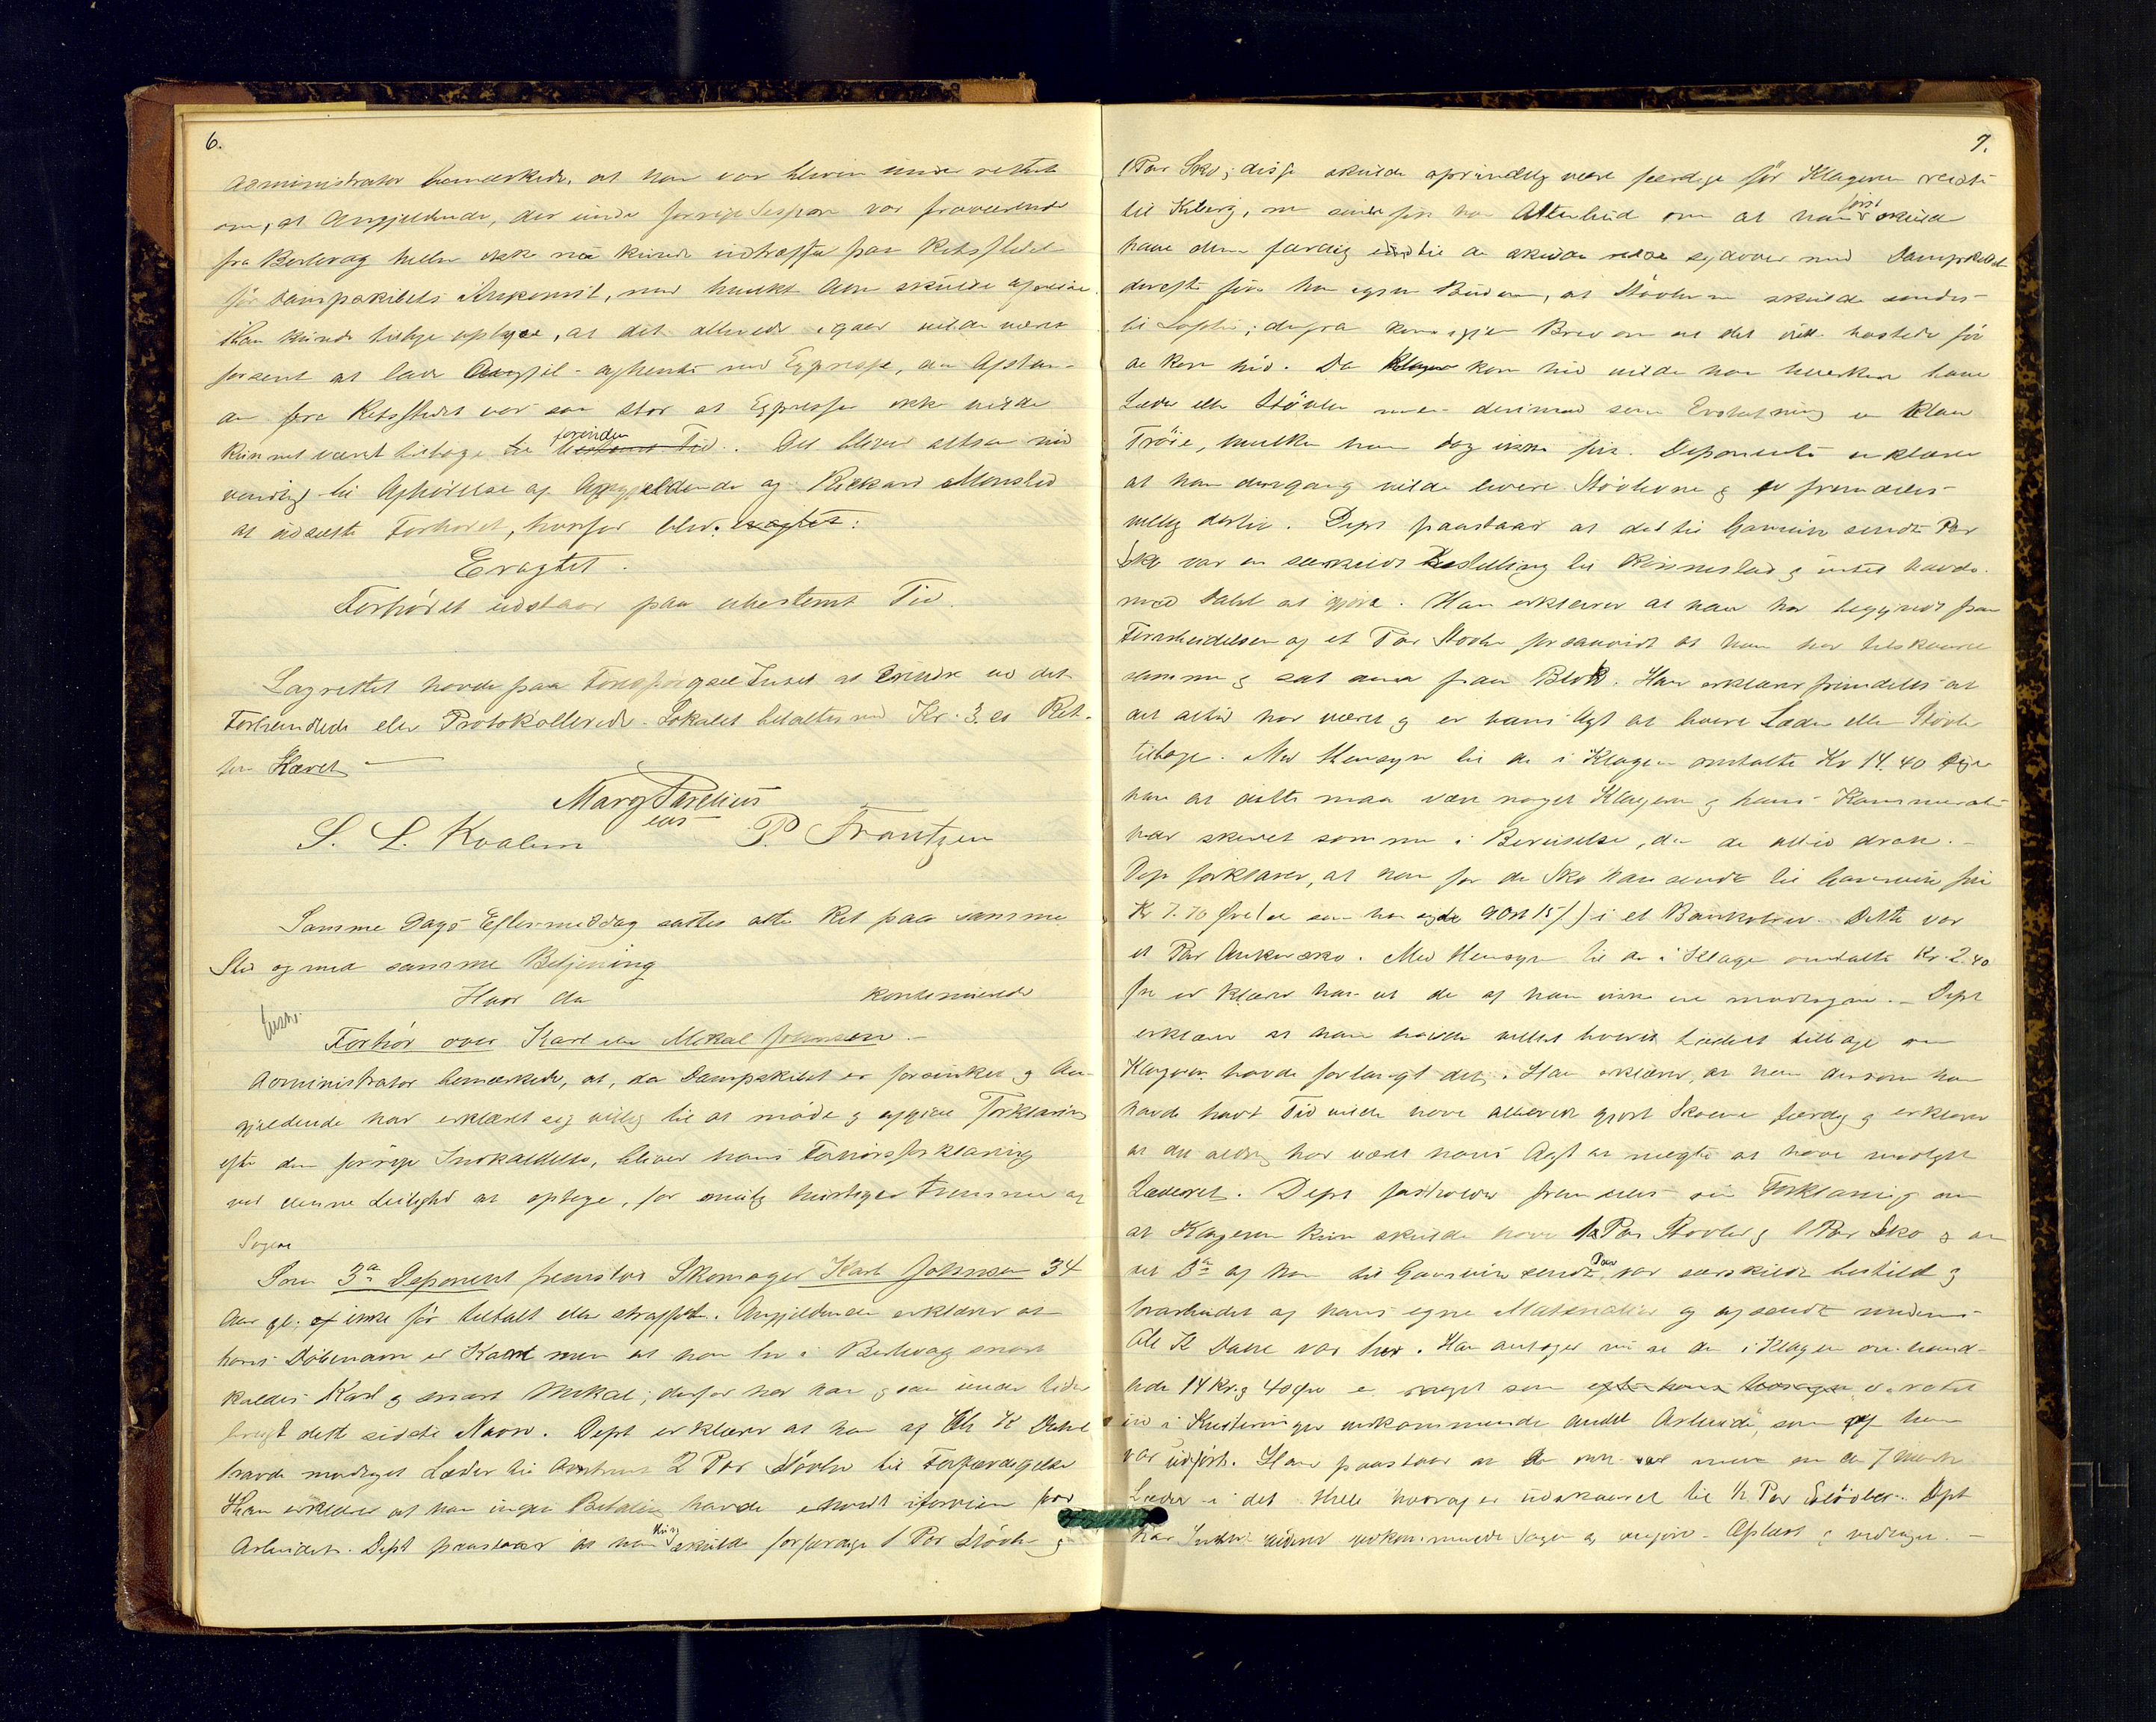 6.
Administrator bemærkede, at han var bleven underrettet
om, at Angjeldende, der under forrige Session var fraværende
fra Berlevag heller ikke nu kunde indtræffe paa Retsstedet
før Dampskibets Ankomst, med hvilket Adm skulde afreise.
Han kunde tillige oplyse, at det allerede igaar vilde været
forsent at lade Angjel- afhente med Expresse, da Afstan-
den fra Retsstedet var saa stor at Expressen ikke vilde
kunnet været tilbage forinden. Det bliver altsaa nød
vendig til Afhørelse af Angjeldende og Rickard Monslid
at udsætte Forhøret, hvorfor blev:
Eragtet.
Forhøret udstaar paa ubestemt Tid.
Lagrettet havde paa Forespørgsel Intet at erindre ved det
Forhandlede eller Protokollerede. Lokalet betaltes med Kr. 3. es Ret-
ten Hævet
Marg Parelius
S. L. Kvalem P. Frantzen
Samme Dags Eftermiddag sattes atter Ret paa samme
Sted og med samme Betjening
Hvor da kontinuerede
Forhør over Karl eller Mekal Johnsen.
Administrator bemærkede, at, da Dampskibet er forsinket og An-
gjeldende har erklæret sig villig til at møde og afgive Forklaring
efter den forrige Indkaldelse, bliver hans Forhørsforklaring
ved denne Leilighed at optage, for mulig hurtigere Fremme af
Sagen
Som 3die Deponent fremstod Skomager Karl Johnsen 34
Aar gl: ikke før tiltalt eller straffet. Angjeldende erklærer at
hans Døbenavn er Karl men at han her i Berlevag snart
kaldes Karl og snart Mekal; derfor har han ogsaa under tiden
brugt dette sidste Navn. Dept erklærer at han af Ole K Dahl
havde modtaget Læder til 2 Par Støvler til Forfærdigelse
Han erklærer at han ingen Betaling havde erholdt iforveien for
Arbeidet. Dept paastaar at han kun skulde forfærdige 1 Par Støvler og
7.
1 Par Sko; disse skulde oprindelig være færdige før Klageren reiste
til Kiberg, men senere fik han Atterbud om at han først skulde
have dem færdig til de skulde reise sydover med Dampskibet
derefter fik han igjen Budene, at Støvlerne skulde sendes
til ; derfra kom igjen Brev om at det ikke hastede før
de kom hid. Da Klager kom hid vilde han hverken have
Læder eller Støvler men derimod som Erstatning en Klæde
Trøie, hvilken han dog ikke fik. Deponenten erklærer
at han dengang vilde levere Støvlerne og er fremdeles
villig dertil. Dept paastaar at det til Gamvik sendte Par
Sko var en særskildt Bestilling til og intet havde
med Dahl at gjøre. Han erklærer at han har begyndt paa
Forarbeidelsen af et Par Støvler forsaavidt at han har tilskaaret
samme og sat dem paa Blok. Han erklærer fremdeles at
det altid har været og er hans Agt at levere Læder eller Støvler
tilbage. Med Hensyn til de i Klagen omtalte Kr 14.40 siger
han at dette maa være noget Klageren og hans Kammerater
har skrevet sammen i Beruselse, da de altid drak.
Dep forklarer, at han for de Sko han sendte til Gamvik fik
Kr 7.70 i et Bankobrev. Dette var
et Par Ankersko. Med Hensyn til de i Klagen omtalte Kr. 2.40
erklærer han at de af ham ikke er modtagne. Dept
erklærer at han havde villet leveret Læderet tilbage om
Klageren havde forlangt det. Han erklærer, at han dersom han
havde havt Tid vilde have allerede gjort Skoene færdig og erklærer
at det aldrig har været hans Agt at nægte at have modtget
Læderet. Dept fastholder fremdeles sin Forklaring om
at Klageren kun skulde have 1 Par Støvler og 1 Par Sko og at
det 3die af ham til Gamvik sendte Par var særskildt bestild og
forarbeidet af hans egne Materialier og afsendt medens
Ole K Dahl var her. Han antager nu at den i Klagen omhand-
lede 14 Kr. og 40 Øre er noget som
vedkommende andet Arbeide, som af ham
var udført. Han paastaar at det ikke var mere end de 7 Mark
Læder i det Hele hvoraf er udskaaret til 1/2 Par Støvler. Dpt
har Intet videre vedkommende Sagen at anføre. Oplæst og vedtaget.